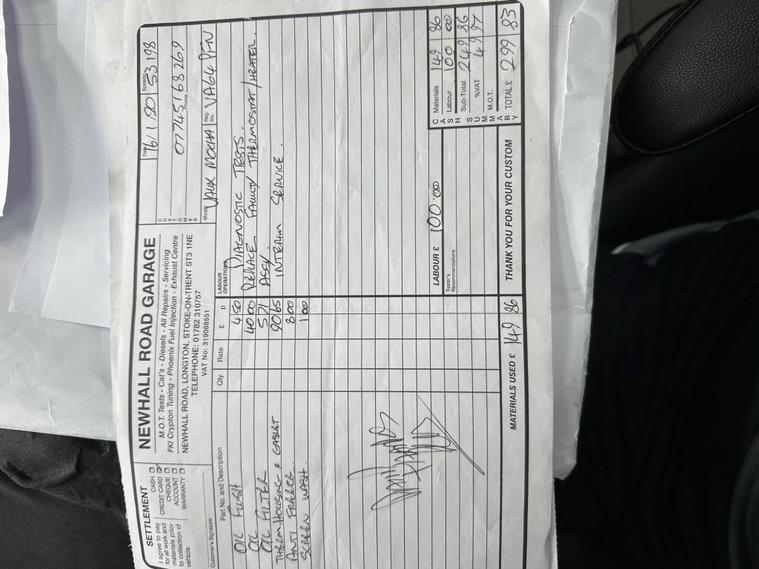 SETTLEMENT
I agree to pay
for all work and
materials prior
to collection of
vehicle.
CASH
CREDIT CARD
CHEQUE
ACCOUNT
WARRANTY
NEWHALL ROAD GARAGE
M.O.T. Tests - Cat's - Diesels - All Repairs - Servicing
FKI Crypton Tuning - Phoenix Fuel Injection - Exhaust Centre
NEWHALL ROAD, LONGTON, STOKE-ON-TRENT ST3 1NE
TELEPHONE: 01782 310757
VAT No: 319068551
Date 16/1/20 Speedo 53198
CUSTOMER
07745168269
Phone
Customer's Signature
Model VAUX MOKKA Reg. No. VA64 PFN
Part No. and Description Qty Rate £ p LABOUR OPERATION
OIL FLUSH 4 50 DIAGNOSTIC TESTS.
OIL 40 00 REPLACE FAULTY THERMOSTAT/HEATER
OIL FILTER 5 71 ASSY.
THERM HOUSING & GASKET 90 65 INTERIM SERVICE.
ANTI FREEZE 8 00
SCREEN WASH 1 00
LABOUR £ 100.00
Tester's Recommendations
CASH SUMMARY
Materials 149 86
Labour 100 00
Sub-Total 249 86
%VAT 49 97
M.O.T.
TOTAL £ 299 83
MATERIALS USED £ 149 86
THANK YOU FOR YOUR CUSTOM